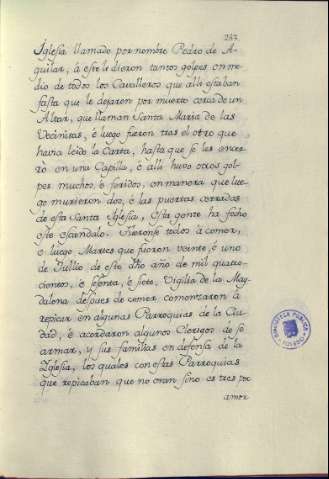 242
Iglesia llamado por nombre Pedro de A-
guilar, à este le dieron tantos golpes en me-
dio de todos los Cavalleros que alli estaban
fasta que le dejaron por muerto cerca de un
Altar, que llaman Santa Maria de las
è luego fueron tras el otro que
havia leido la Carta, hasta que se les encer-
rò en una Capilla, è alli huvo otros gol-
pes muchos, è feridos, en manera que lue-
go murieron dos, è las puertas cerradas
de esta Santa Iglesia, esta gente ha fecho
este escandalo. Fueronse todos à comer,
è luego Martes que fueron veinte, è uno
de Jullio de este dho año de mil quatro-
cientos, è sesenta, è siete, Vigilia de la Mag-
dalena despues de comer comenzaron à
repicar en algunas Parroquias de la Ciu-
dad, è acordaron algunos Clerigos de se
armar, y sus familias en defensa de la
Iglesia, los quales con estas Parroquias
que repicaban que no eran sino es tres por
amor
BIBLIOTECA PUBLICA
TOLEDO